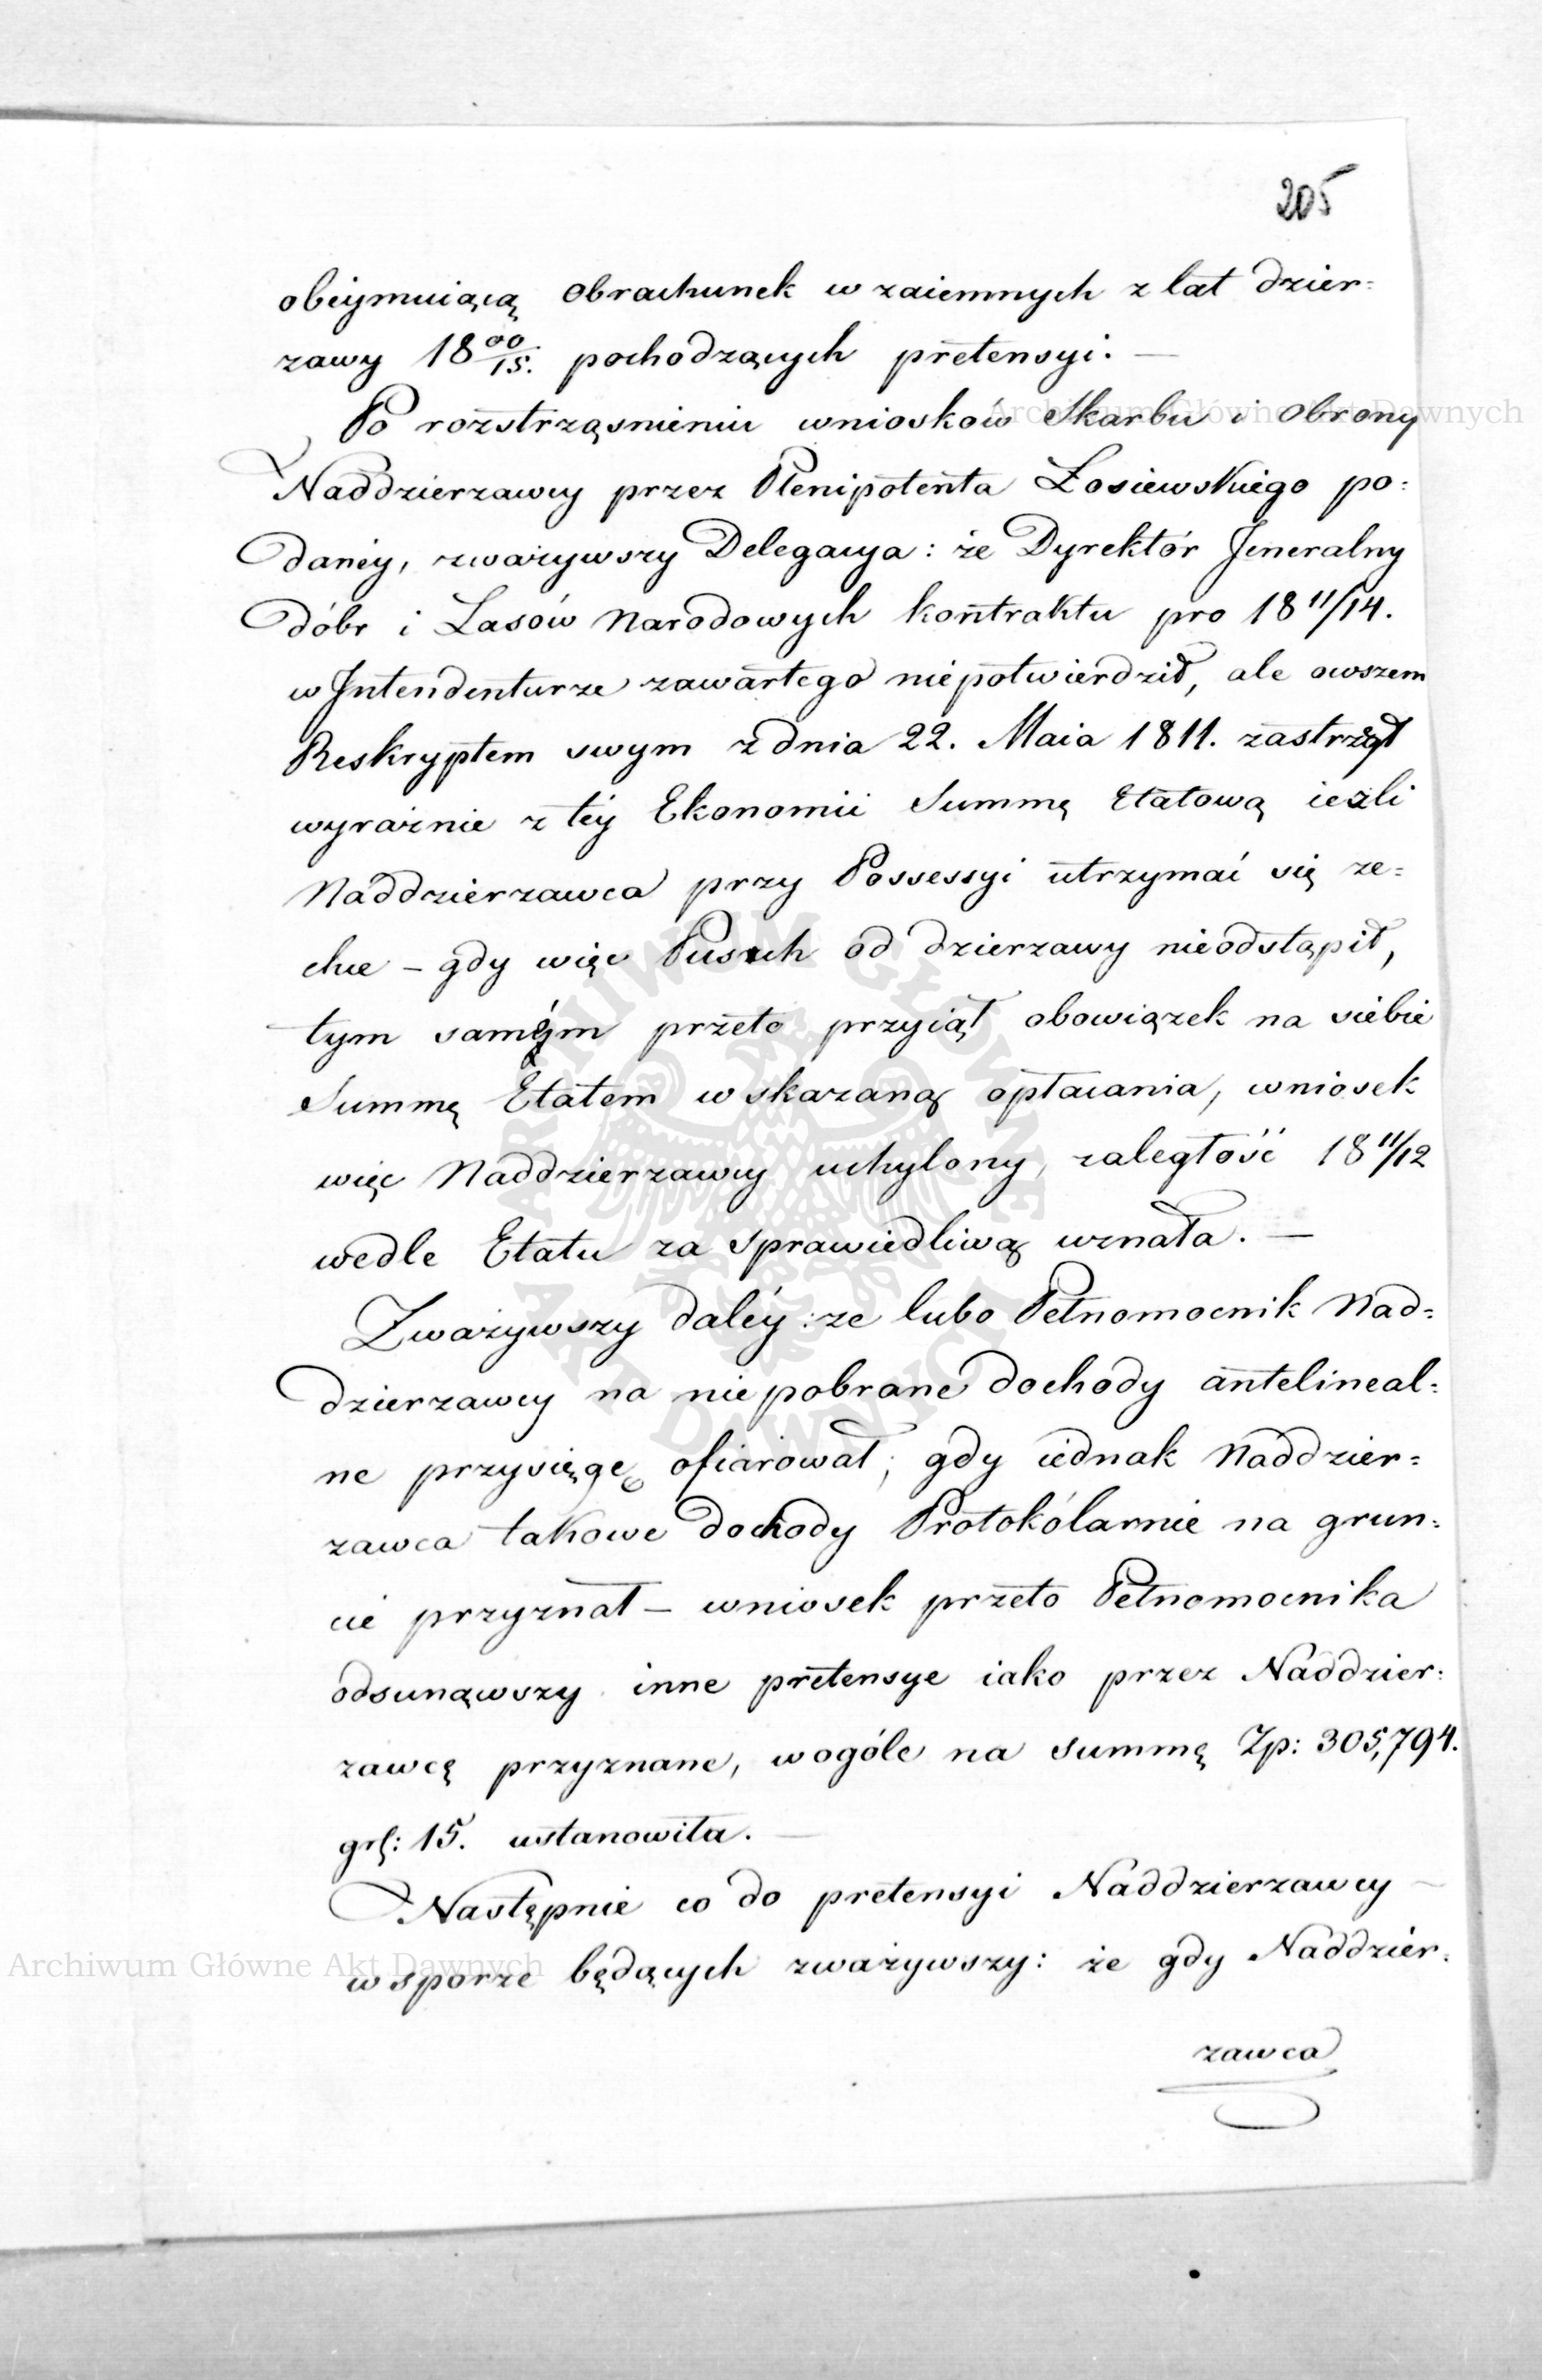 205
obeymuiącą obrachunek wzaiemnych z lat dzier=
zawy 18 00/15. pochodzących pretensyi. —
Po rozstrząsnieniu wniosków Skarbu i obrony
Naddzierzawcy przez Plenipotenta Łosiewskiego po=
daney, zważywszy Delegacya: że Dyrektór Jeneralny
dóbr i Lasów Narodowych kontraktu pro 18 11/14.
w Intendenturze zawartego niepotwierdził, ale owszem
Reskryptem swym z dnia 22. Maia 1811. zastrzągł
wyraźnie z téy Ekonomii Summę Etatową ieżli
Naddzierzawca przy Possessyi utrzymać się ze=
chce – gdy więc Pusch od dzierzawy nieodstąpił,
tym samym przeto przyiął obowiązek na siebie
Summę Etatem wskazaną opłacania, wniosek
więc Naddzierzawcy uchylony, zaległość 18 11/12
wedle Etatu za sprawiedliwą uznała. —
Zważywszy daléy: ze lubo Pełnomocnik Nad=
dzierzawcy na niepobrane dochody antelineal=
ne przysięgę ofiarował; gdy iednak Naddzier=
zawca takowe dochody Protokólarnie na grun=
cie przyznał – wniosek przeto Pełnomocnika
odsunąwszy inne pretensye iako przez Naddzier=
zawcę przyznane, wogóle na summę Zp: 305,794.
grs: 15. ustanowiła. —
Następnie co do pretensyi Naddzierzawcy —
w sporze będących zważywszy: że gdy Naddzier=
zawca
Archiwum Główne Akt Dawnych
Archiwum Główne Akt Dawnych
ARCHIWUM GŁÓWNE AKT DAWNYCH